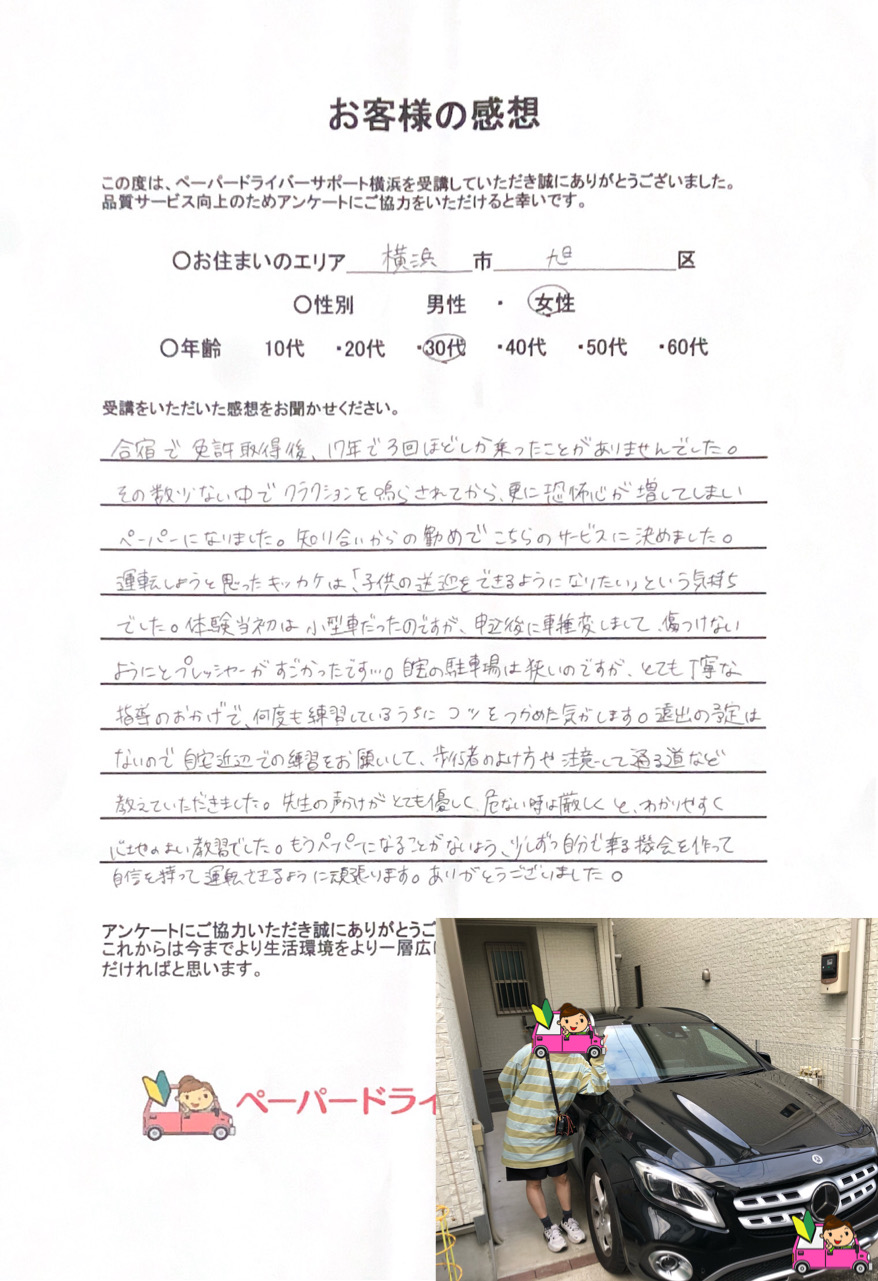 お客様の感想
この度は、ペーパードライバーサポート横浜を受講していただき誠にありがとうございました。
品質サービス向上のためアンケートにご協力をいただけると幸いです。
〇お住まいのエリア 横浜 市 旭 区
〇性別 男性 ・ 女性
〇年齢 10代 ・20代 ・30代 ・40代 ・50代 ・60代
受講をいただいた感想をお聞かせください。
合宿で免許取得後、17年で3回ほどしか乗ったことがありませんでした。
その数少ない中でクラクションを鳴らされてから、更に恐怖心が増してしまい
ペーパーになりました。知り合いからの勧めでこちらのサービスに決めました。
運転しようと思ったキッカケは、「子供の送迎をできるようになりたい」という気持ち
でした。体験当初は小型車だったのですが、申込後に車種変しまして、傷つけない
ようにとプレッシャーがすごかったです…。自宅の駐車場は狭いのですが、とても丁寧な
指導のおかげで、何度も練習しているうちにコツをつかめた気がします。遠出の予定は
ないので自宅近辺での練習をお願いして、歩行者のよけ方や注意して通る道など
教えていただきました。先生の声かけがとても優しく、危ない時は厳しくと、わかりやすく
心地のよい教習でした。もうペーパーになることがないよう、少しずつ自分で乗る機会を作って
自信を持って運転できるように頑張ります。ありがとうございました。
アンケートにご協力いただき誠にありがとうご
これからは今までより生活環境をより一層広
だければと思います。
ペーパードライ